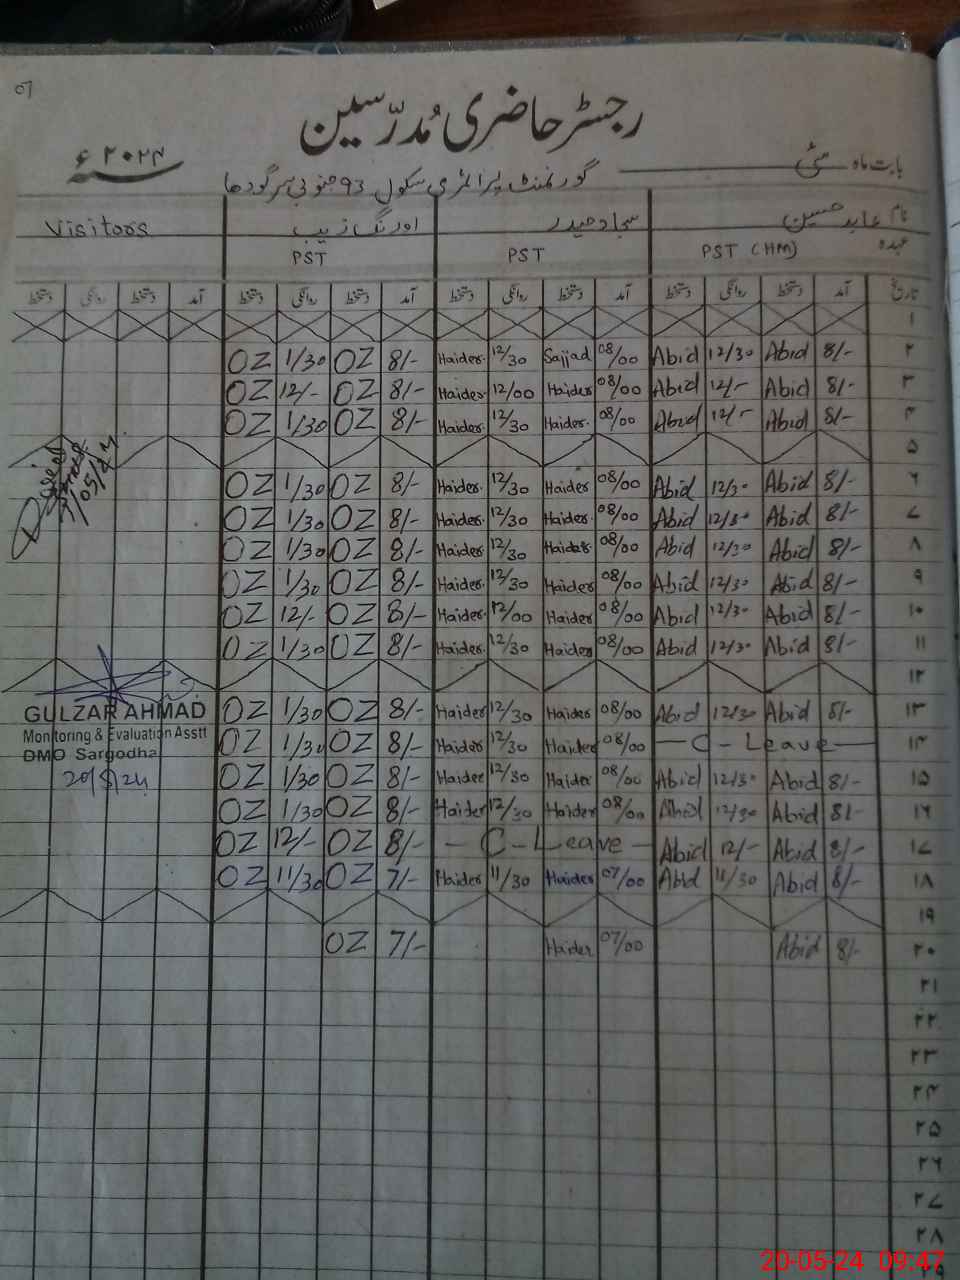 07
رجسٹر حاضری مُدرّسین
بابت ماہ مئی ۲۰۲۴ء
گورنمنٹ پرائمری سکول 93 جنوبی سرگودھا
نام عابد حسین سجاد حیدر اورنگ زیب Visitors
عہدہ PST (HM) PST PST
تاریخ آمد دستخط روانگی دستخط آمد دستخط روانگی دستخط آمد دستخط روانگی دستخط آمد دستخط روانگی دستخط
۱
۲ 8/- Abid 12/30 Abid 08/00 Sajjad 12/30 Haider 8/- OZ 1/30 OZ
۳ 8/- Abid 12/- Abid 08/00 Haider 12/00 Haider 8/- OZ 12/- OZ
۴ 8/- Abid 12/- Abid 08/00 Haider 12/30 Haider 8/- OZ 1/30 OZ
۵
۶ 8/- Abid 12/30 Abid 08/00 Haider 12/30 Haider 8/- OZ 1/30 OZ
۷ 8/- Abid 12/30 Abid 08/00 Haider 12/30 Haider 8/- OZ 1/30 OZ
۸ 8/- Abid 12/30 Abid 08/00 Haider 12/30 Haider 8/- OZ 1/30 OZ
۹ 8/- Abid 12/30 Abid 08/00 Haider 12/30 Haider 8/- OZ 1/30 OZ
۱۰ 8/- Abid 12/30 Abid 08/00 Haider 12/00 Haider 8/- OZ 12/- OZ
۱۱ 8/- Abid 12/30 Abid 08/00 Haider 12/30 Haider 8/- OZ 1/30 OZ
۱۲
۱۳ 8/- Abid 12/30 Abid 08/00 Haider 12/30 Haider 8/- OZ 1/30 OZ
۱۴ C-Leave 08/00 Haider 12/30 Haider 8/- OZ 1/30 OZ
۱۵ 8/- Abid 12/30 Abid 08/00 Haider 12/30 Haider 8/- OZ 1/30 OZ
۱۶ 8/- Abid 12/30 Abid 08/00 Haider 12/30 Haider 8/- OZ 1/30 OZ
۱۷ 8/- Abid 12/- Abid C-Leave 8/- OZ 12/- OZ
۱۸ 8/- Abid 11/30 Abid 07/00 Haider 11/30 Haider 7/- OZ 11/30 OZ
۱۹
۲۰ 8/- Abid 07/00 Haider 7/- OZ
۲۱
۲۲
۲۳
۲۴
۲۵
۲۶
۲۷
۲۸
GULZAR AHMAD
Monitoring & Evaluation Asstt
DMO Sargodha
20/5/24
20-05-24 09:47